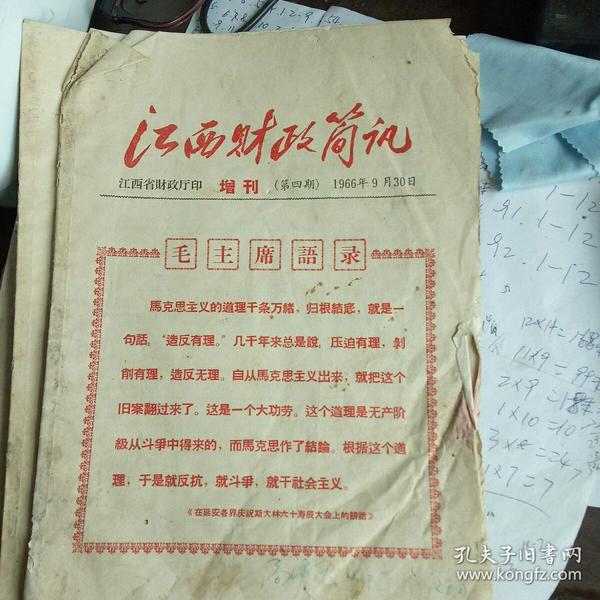 江西财政简讯
江西省財政厅印 增刊 (第四期) 1966年9月30日
毛主席語录
馬克思主义的道理千条万緒，归根結底，就是一
句話，“造反有理。”几千年来总是說，压迫有理，剝
削有理，造反无理。自从馬克思主义出来，就把这个
旧案翻过来了。这是一个大功劳。这个道理是无产阶
級从斗爭中得来的，而馬克思作了結論。根据这个道
理，于是就反抗，就斗爭，就干社会主义。
《在延安各界庆祝斯大林六十寿辰大会上的講話》
1-12
91.1-12
92.1-12
11×9=99
2×9=18
1×10=10
3×8=24
1×7=7
孔夫子旧书网
www.kongfz.com